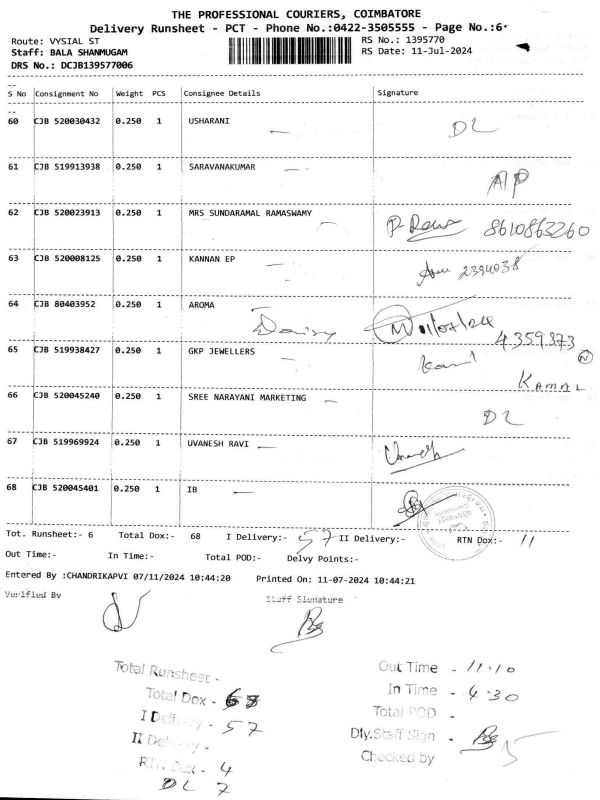 THE PROFESSIONAL COURIERS, COIMBATORE
Delivery Runsheet - PCT - Phone No.:0422-3505555 - Page No.:6
Route: VYSIAL ST
RS No.: 1395770
Staff: BALA SHANMUGAM
RS Date: 11-Jul-2024
DRS No.: DCJB139577006
S No Consignment No Weight PCS Consignee Details Signature
60 CJB 520030432 0.250 1 USHARANI DL
61 CJB 519913938 0.250 1 SARAVANAKUMAR AP
62 CJB 520023913 0.250 1 MRS SUNDARAMAL RAMASWAMY 8610863260
63 CJB 520008125 0.250 1 KANNAN EP 2394038
64 CJB 80403952 0.250 1 AROMA
Daisy
4359373
65 CJB 519938427 0.250 1 GKP JEWELLERS
KAMAL
66 CJB 520045240 0.250 1 SREE NARAYANI MARKETING DL
67 CJB 519969924 0.250 1 UVANESH RAVI
68 CJB 520045401 0.250 1 IB
Tot. Runsheet:- 6 Total Dox:- 68 I Delivery:- 57 II Delivery:- RTN Dox:- 11
Out Time:- In Time:- Total POD:- Delvy Points:-
Entered By :CHANDRIKAPVI 07/11/2024 10:44:20 Printed On: 11-07-2024 10:44:21
Verified By Staff Signature
Total Runsheet -
Total Dox - 68
I Delivery - 57
II Delivery -
RTN Dox - 4
DL 7
Out Time - 11.10
In Time - 4.30
Total POD -
Dly.Staff Sign -
Checked by